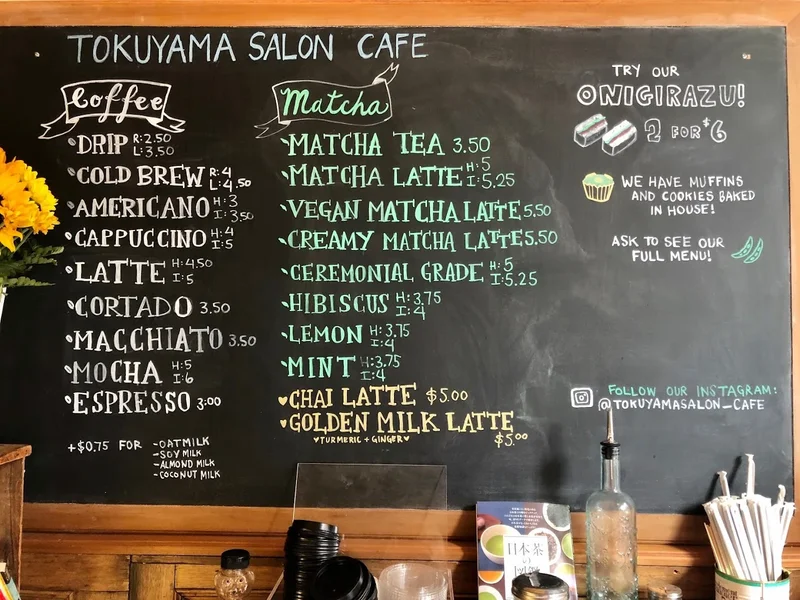 TOKUYAMA SALON CAFE
Coffee
DRIP R: 2.50
L: 3.50
COLD BREW R: 4
L: 4.50
AMERICANO H: 3
I: 3.50
CAPPUCCINO H: 4
I: 5
LATTE H: 4.50
I: 5
CORTADO 3.50
MACCHIATO 3.50
MOCHA H: 5
I: 6
ESPRESSO 3:00
+$0.75 FOR -OATMILK
-SOY MILK
-ALMOND MILK
-COCONUT MILK
Matcha
MATCHA TEA 3.50
MATCHA LATTE H: 5
I: 5.25
VEGAN MATCHA LATTE 5.50
CREAMY MATCHA LATTE 5.50
CEREMONIAL GRADE H: 5
I: 5.25
HIBISCUS H: 3.75
I: 4
LEMON H: 3.75
I: 4
MINT H: 3.75
I: 4
CHAI LATTE $5.00
GOLDEN MILK LATTE
TURMERIC + GINGER
$5.00
TRY OUR
ONIGIRAZU!
2 FOR $6
WE HAVE MUFFINS
AND COOKIES BAKED
IN HOUSE!
ASK TO SEE OUR
FULL MENU!
FOLLOW OUR INSTAGRAM:
@TOKUYAMASALON_CAFE
日本茶
の